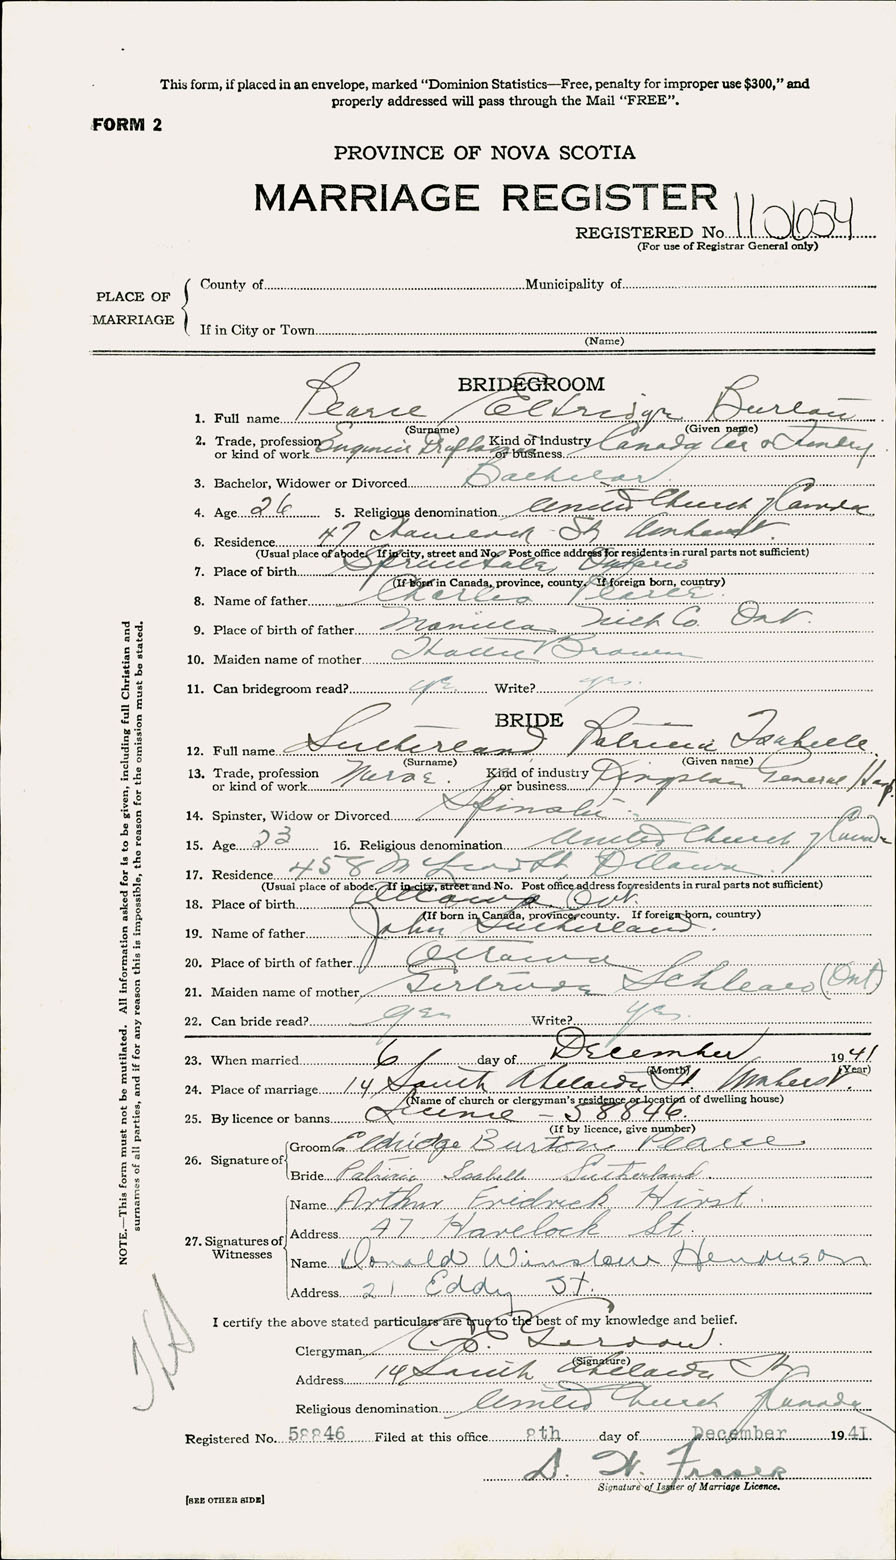 This form, if placed in an envelope, marked “Dominion Statistics—Free, penalty for improper use $300,” and
properly addressed will pass through the Mail “FREE”.
FORM 2
PROVINCE OF NOVA SCOTIA
MARRIAGE REGISTER
REGISTERED No. 110654
(For use of Registrar General only)
PLACE OF MARRIAGE
County of Municipality of
If in City or Town
(Name)
BRIDEGROOM
1. Full name Pearce Eldridge Burton
(Surname) (Given name)
2. Trade, profession or kind of work Engineer Draftsman Kind of industry or business Canada Car & Foundry
3. Bachelor, Widower or Divorced Bachelor
4. Age 26 5. Religious denomination United Church of Canada
6. Residence 47 Havelock St. Amherst
(Usual place of abode. If in city, street and No. Post office address for residents in rural parts not sufficient)
7. Place of birth Sprucedale, Ontario
(If born in Canada, province, county. If foreign born, country)
8. Name of father Charles Pearce
9. Place of birth of father Manilla Co. Ont.
10. Maiden name of mother Hattie Brown
11. Can bridegroom read? yes Write? yes.
BRIDE
12. Full name Sutherland Patricia Isabelle
(Surname) (Given name)
13. Trade, profession or kind of work Nurse. Kind of industry or business Kingston General Hosp.
14. Spinster, Widow or Divorced Spinster
15. Age 23 16. Religious denomination United Church of Canada
17. Residence 458 McLeod St., Ottawa
(Usual place of abode. If in city, street and No. Post office address for residents in rural parts not sufficient)
18. Place of birth Ottawa, Ont.
(If born in Canada, province, county. If foreign born, country)
19. Name of father John Sutherland.
20. Place of birth of father Ottawa
21. Maiden name of mother Gertrude (Ont)
22. Can bride read? yes Write? yes.
23. When married 6 day of December 1941
(Month) (Year)
24. Place of marriage 14 South Adelaide St. Amherst.
(Name of church or clergyman's residence or location of dwelling house)
25. By licence or banns License - 58846
(If by licence, give number)
26. Signature of Groom Eldridge Burton Pearce
Bride Patricia Isabelle Sutherland.
27. Signatures of Witnesses
Name Arthur Fredrick Hirst.
Address 47 Havelock St.
Name Donald Winslow Henderson
Address 21 Eddy St.
I certify the above stated particulars are true to the best of my knowledge and belief.
Clergyman Gordon.
(Signature)
Address 14 South Adelaide St
Religious denomination United Church of Canada
Registered No. 58846 Filed at this office 8th day of December 1941
D. W. Fraser
Signature of Issuer of Marriage Licence.
[SEE OTHER SIDE]
NOTE.—This form must not be mutilated. All information asked for is to be given, including full Christian and
surnames of all parties, and if for any reason this is impossible, the reason for the omission must be stated.